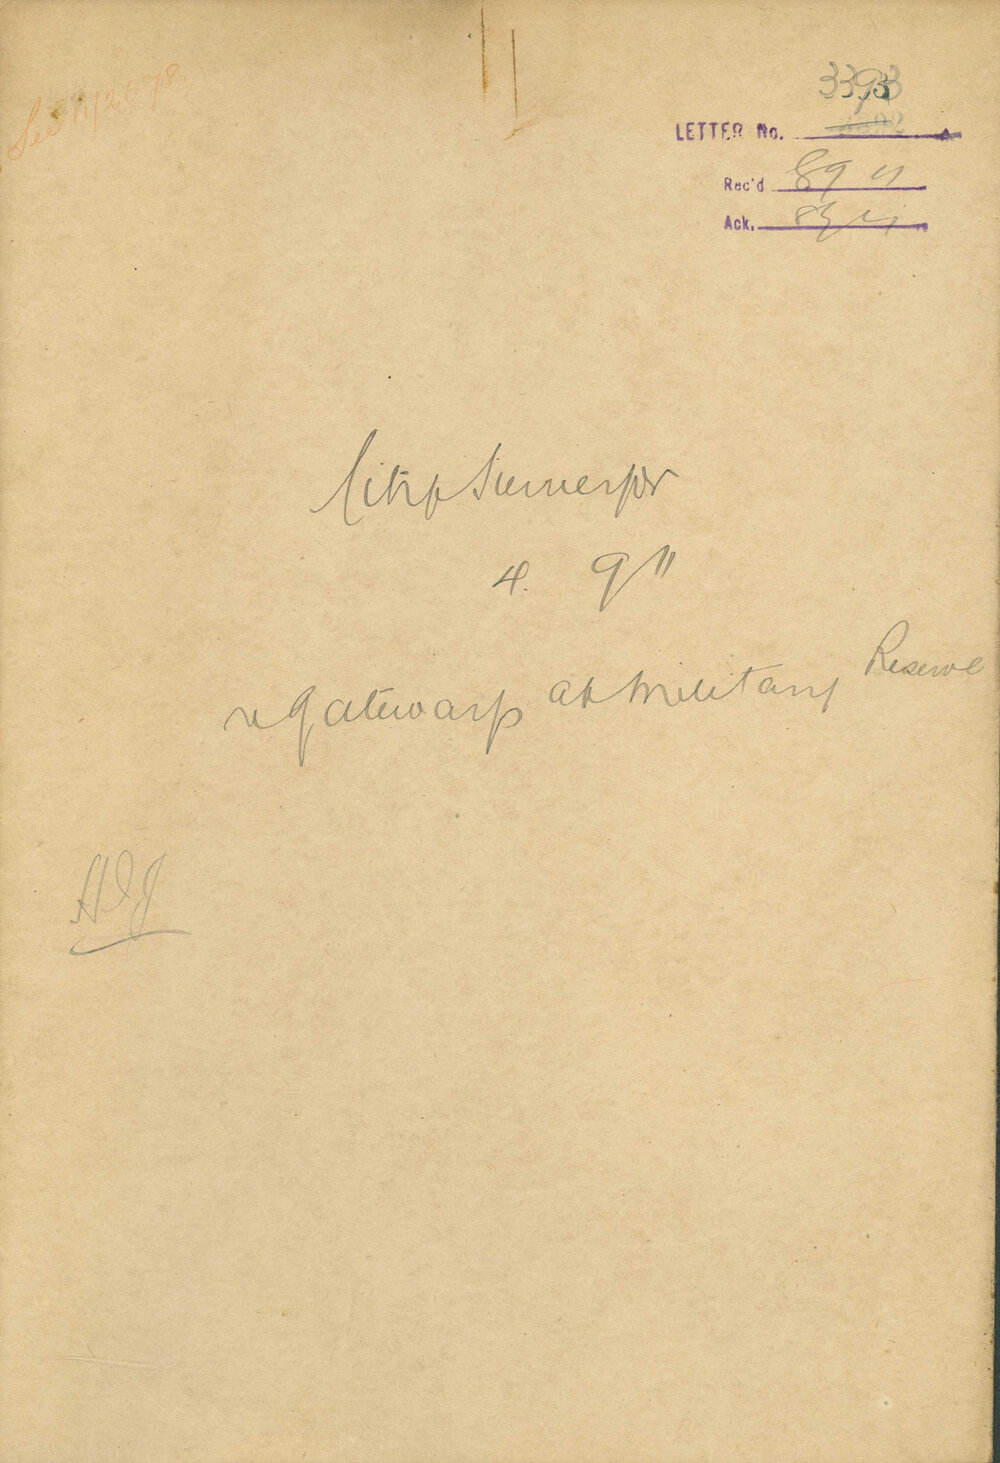 See 11/2678
3393
LETTER No.
Rec'd 8 9 11
Ack. 8/9/11
City Surveyor
4. 9 11
re gateways at Military Reserve